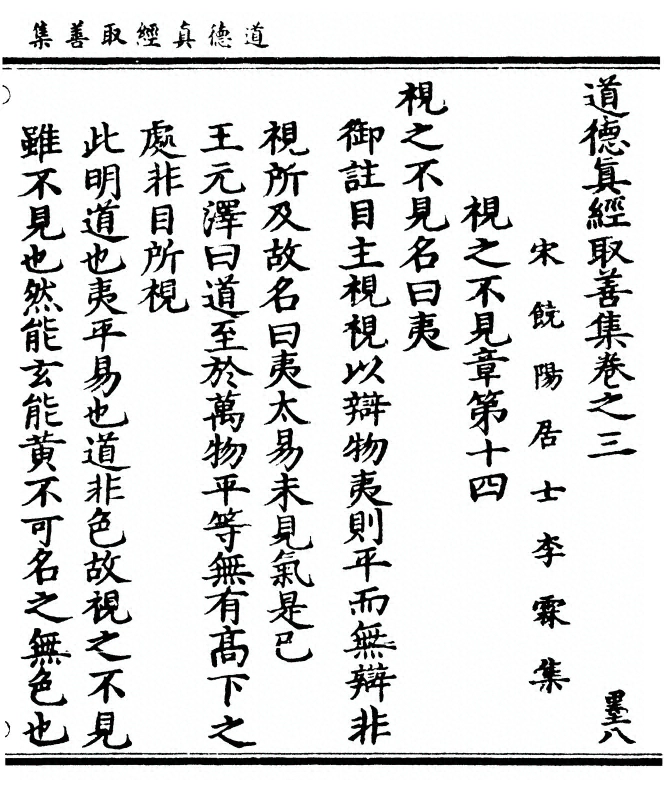 集善取經真德道
道德真經取善集卷之三
墨八
宋饒陽居士李霖集
視之不見章第十四
視之不見名曰夷
御註目主視視以辯物夷則平而無辯非
視所及故名曰夷太易未見氣是已
王元澤曰道至於萬物平等無有高下之
處非目所視
此明道也夷平易也道非色故視之不見
雖不見也然能玄能黃不可名之無色也